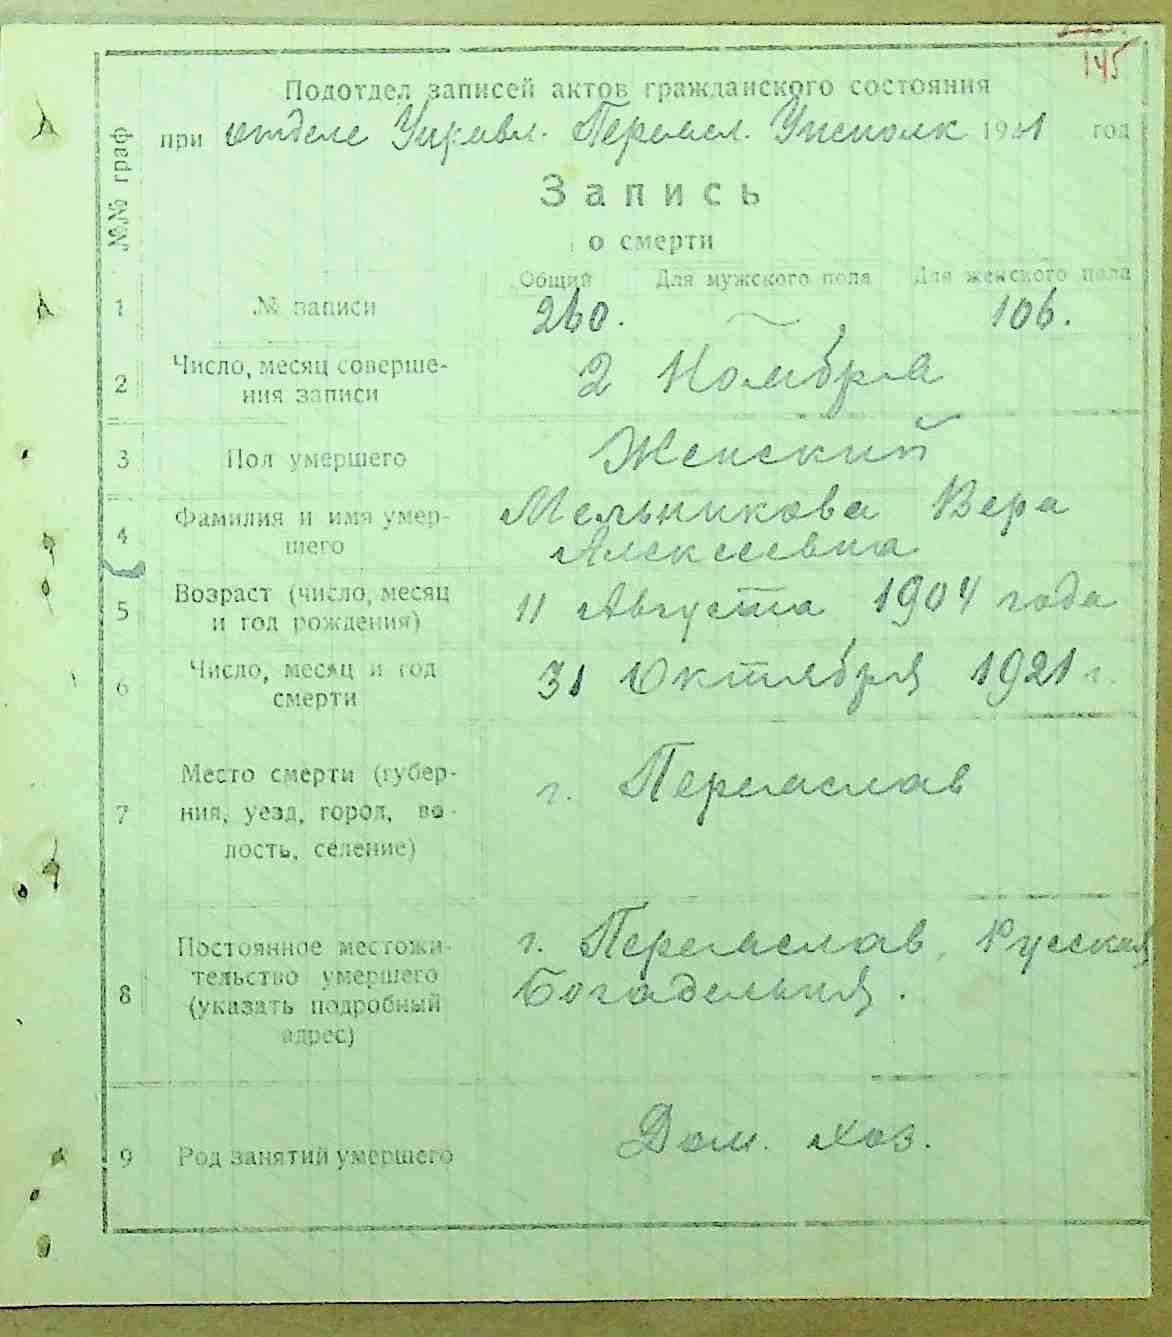 145
Подотдел записей актов гражданского состояния
при отделе Управл. Переясл. Уисполк 1921 год
№№ граф
Запись
о смерти
Общий Для мужского пола Для женского пола
1 № записи 260. 106.
2 Число, месяц соверше-
ния записи 2 Ноября
3 Пол умершего Женский
4 Фамилия и имя умер- Мельникова Вера
шего Алексеевна
5 Возраст (число, месяц 11 Августа 1904 года
и год рождения)
6 Число, месяц и год 31 Октября 1921 г.
смерти
7 Место смерти (губер- г. Переяслав
ния, уезд, город, во-
лость, селение)
8 Постоянное местожи- г. Переяслав, Русская
тельство умершего Богадельня.
(указать подробный
адрес)
9 Род занятий умершего Дом. хоз.